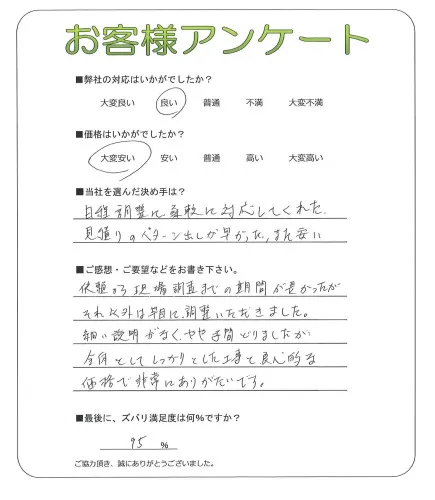 お客様アンケート
■弊社の対応はいかがでしたか？
大変良い 良い 普通 不満 大変不満
■価格はいかがでしたか？
大変安い 安い 普通 高い 大変高い
■当社を選んだ決め手は？
日程調整に柔軟に対応してくれた.
見積りのパターン出しが早かった,また安い
■ご感想・ご要望などをお書き下さい。
依頼から現場調査までの期間が長かったが
それ以外は早目に調整いただきました。
細い説明がなく、やや手間どりましたが
全体としてしっかりとした工事と良心的な
価格で非常にありがたいです。
■最後に、ズバリ満足度は何%ですか？
95 %
ご協力頂き、誠にありがとうございました。